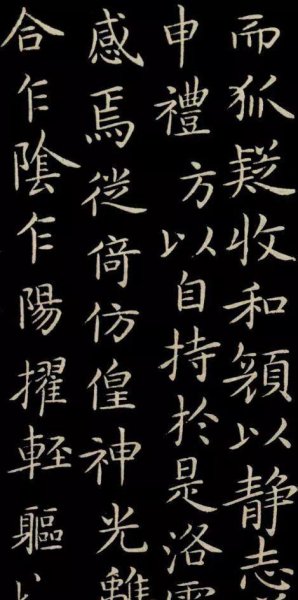 而狐疑收和顔以静志
申禮方以自持於是洛
感焉徙倚仿偟神光離
合乍陰乍陽擢軽軀